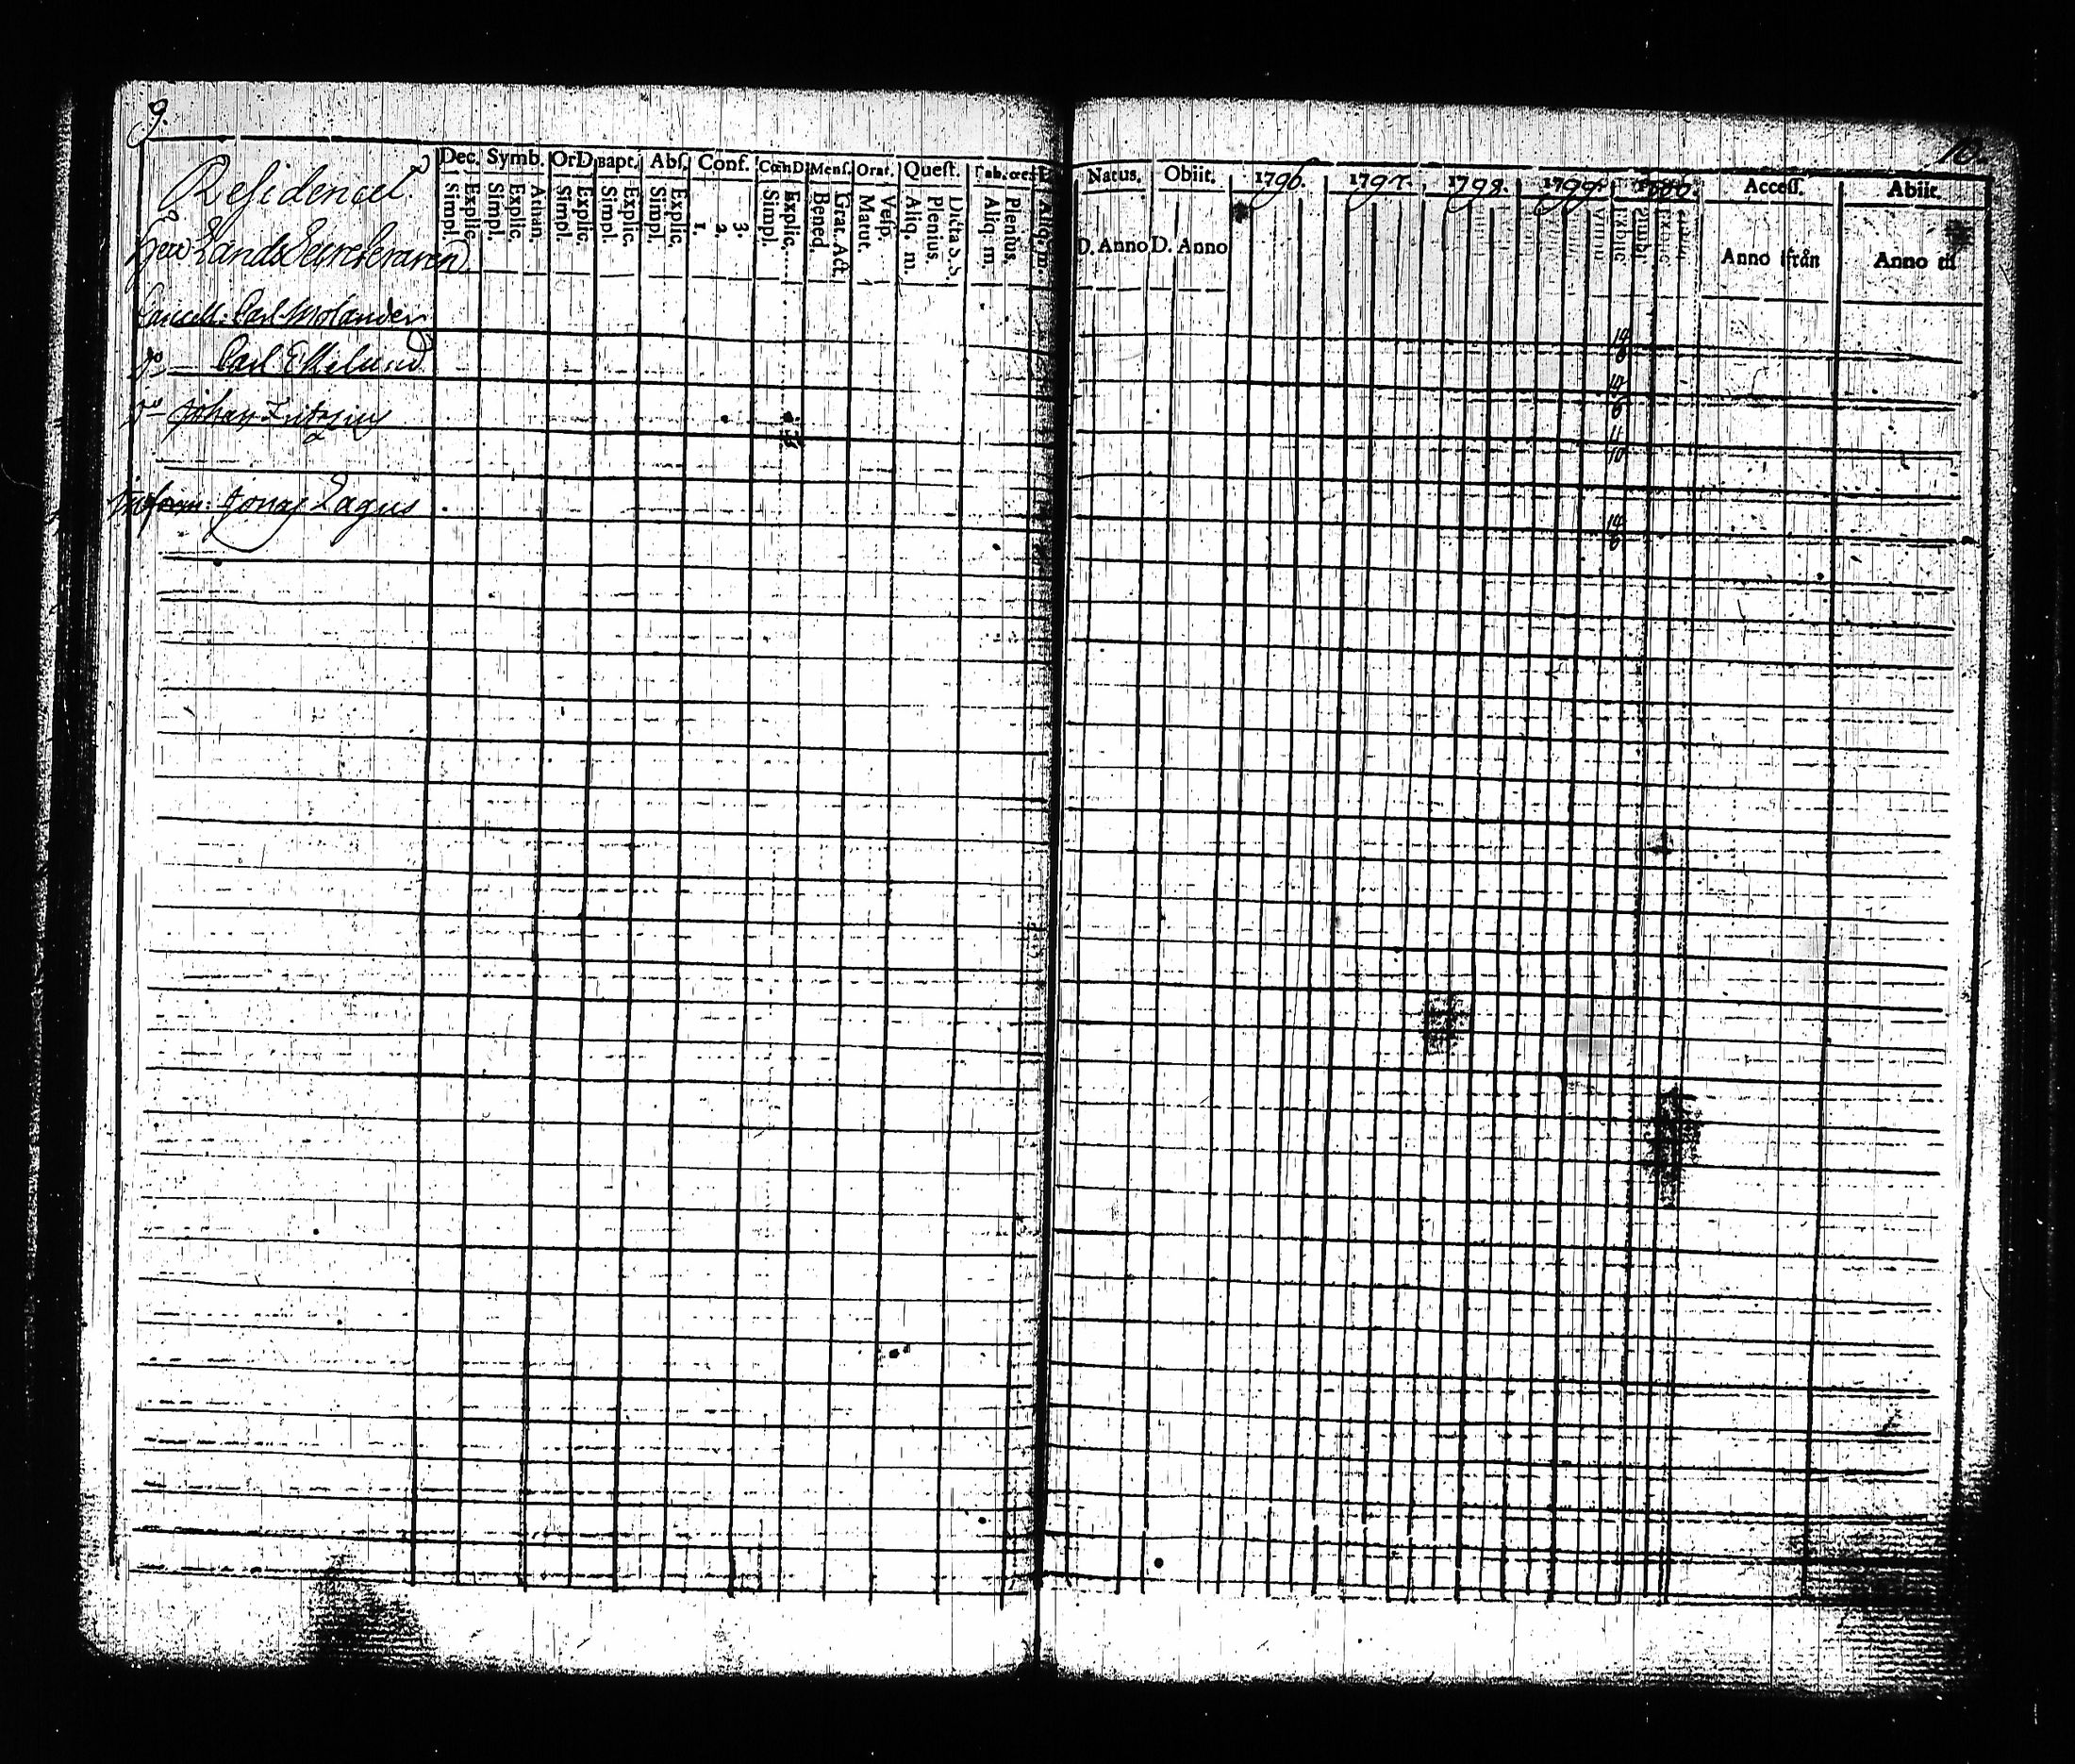 9.
Residencet
Herr LandsSecreteraren
Cancell. Carl Molander
Do Carl Ekelund
Do Johan
Inform. Jonas Lagus
Dec. Symb. OrD. Bapt. Abs. Conf. CœnD. Mens. Orat. Quest.
Simpl. Explic. Simpl. Explic. Athan. Simpl. Explic. Simpl. Explic. Simpl. Explic. 1. 2. 3. Simpl. Explic. Bened. Grat. Act. Matut. Vesp. Aliq. m. Plenius. Dicta S. S. Aliq. m. Plenius. Aliq. m.
10.
Natus. Obiit. 1796. 1797. 1798. 1799. 1800. Access. Abiit.
D. Anno D. Anno Anno ifrån Anno til
14
6
14
6
11
10
14
6